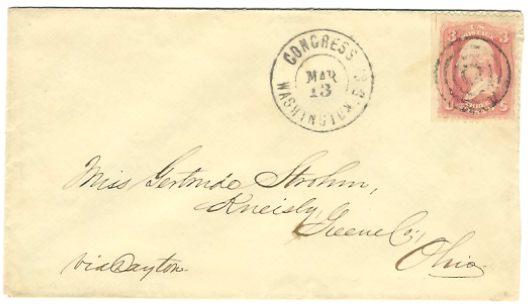 CONGRESS
MAR
13
WASHINGTON
U.S.
3 3
Miss Gertrude Strohm,
Kneisly,
Greene Co,
Ohio.
via Dayton